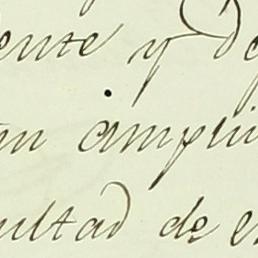 ente y de
an ampli
ultad de e